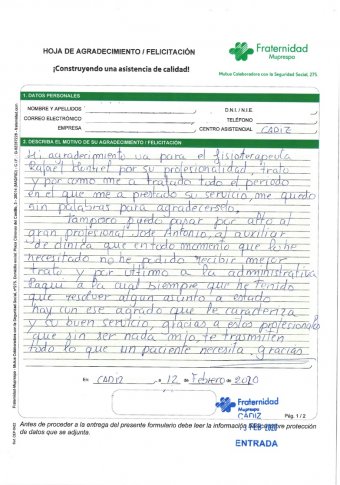 HOJA DE AGRADECIMIENTO / FELICITACIÓN
¡Construyendo una asistencia de calidad!
Fraternidad
Muprespa
Mutua Colaboradora con la Seguridad Social, 275
1. DATOS PERSONALES
NOMBRE Y APELLIDOS
D.N.I. / N.I.E.
CORREO ELECTRÓNICO
TELÉFONO
EMPRESA
CENTRO ASISTENCIAL CADIZ
2. DESCRIBA EL MOTIVO DE SU AGRADECIMIENTO / FELICITACIÓN
Mi agradecimiento va para el fisioterapeuta
Rafael Montiel por su profesionalidad, trato
y por como me a tratado todo el periodo
en el que me a prestado su servicio, me quedo
sin palabras para agradecerselo.
Tampoco puedo pasar por alto al
gran profesional Jose Antonio, al auxiliar
de clinica que en todo momento que le he
necesitado no he podido recibir mejor
trato y por ultimo a la administrativa
Paqui a la cual siempre que he tenido
que resolver algun asunto a estado
hay con ese agrado que le caracteriza
y su buen servicio, gracias a estos profesionales
que sin ser nada mio, te trasmiten
todo lo que un paciente necesita. gracias
En CADIZ, a 12 de Febrero de 2020
Fraternidad
Muprespa
CADIZ
Pág. 1 / 2
13 FEB. 2020
ENTRADA
Antes de proceder a la entrega del presente formulario debe leer la información sobre protección
de datos que se adjunta.